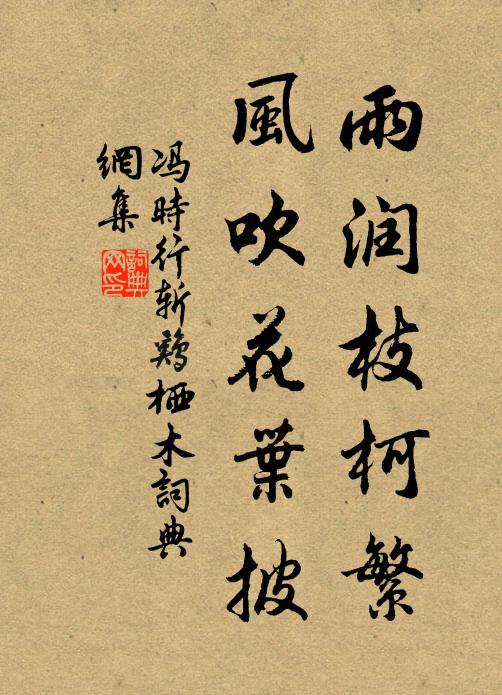 雨润枝柯繁
風吹花葉披
冯時行斩鸡栖木詞典
網集
詞典
网印